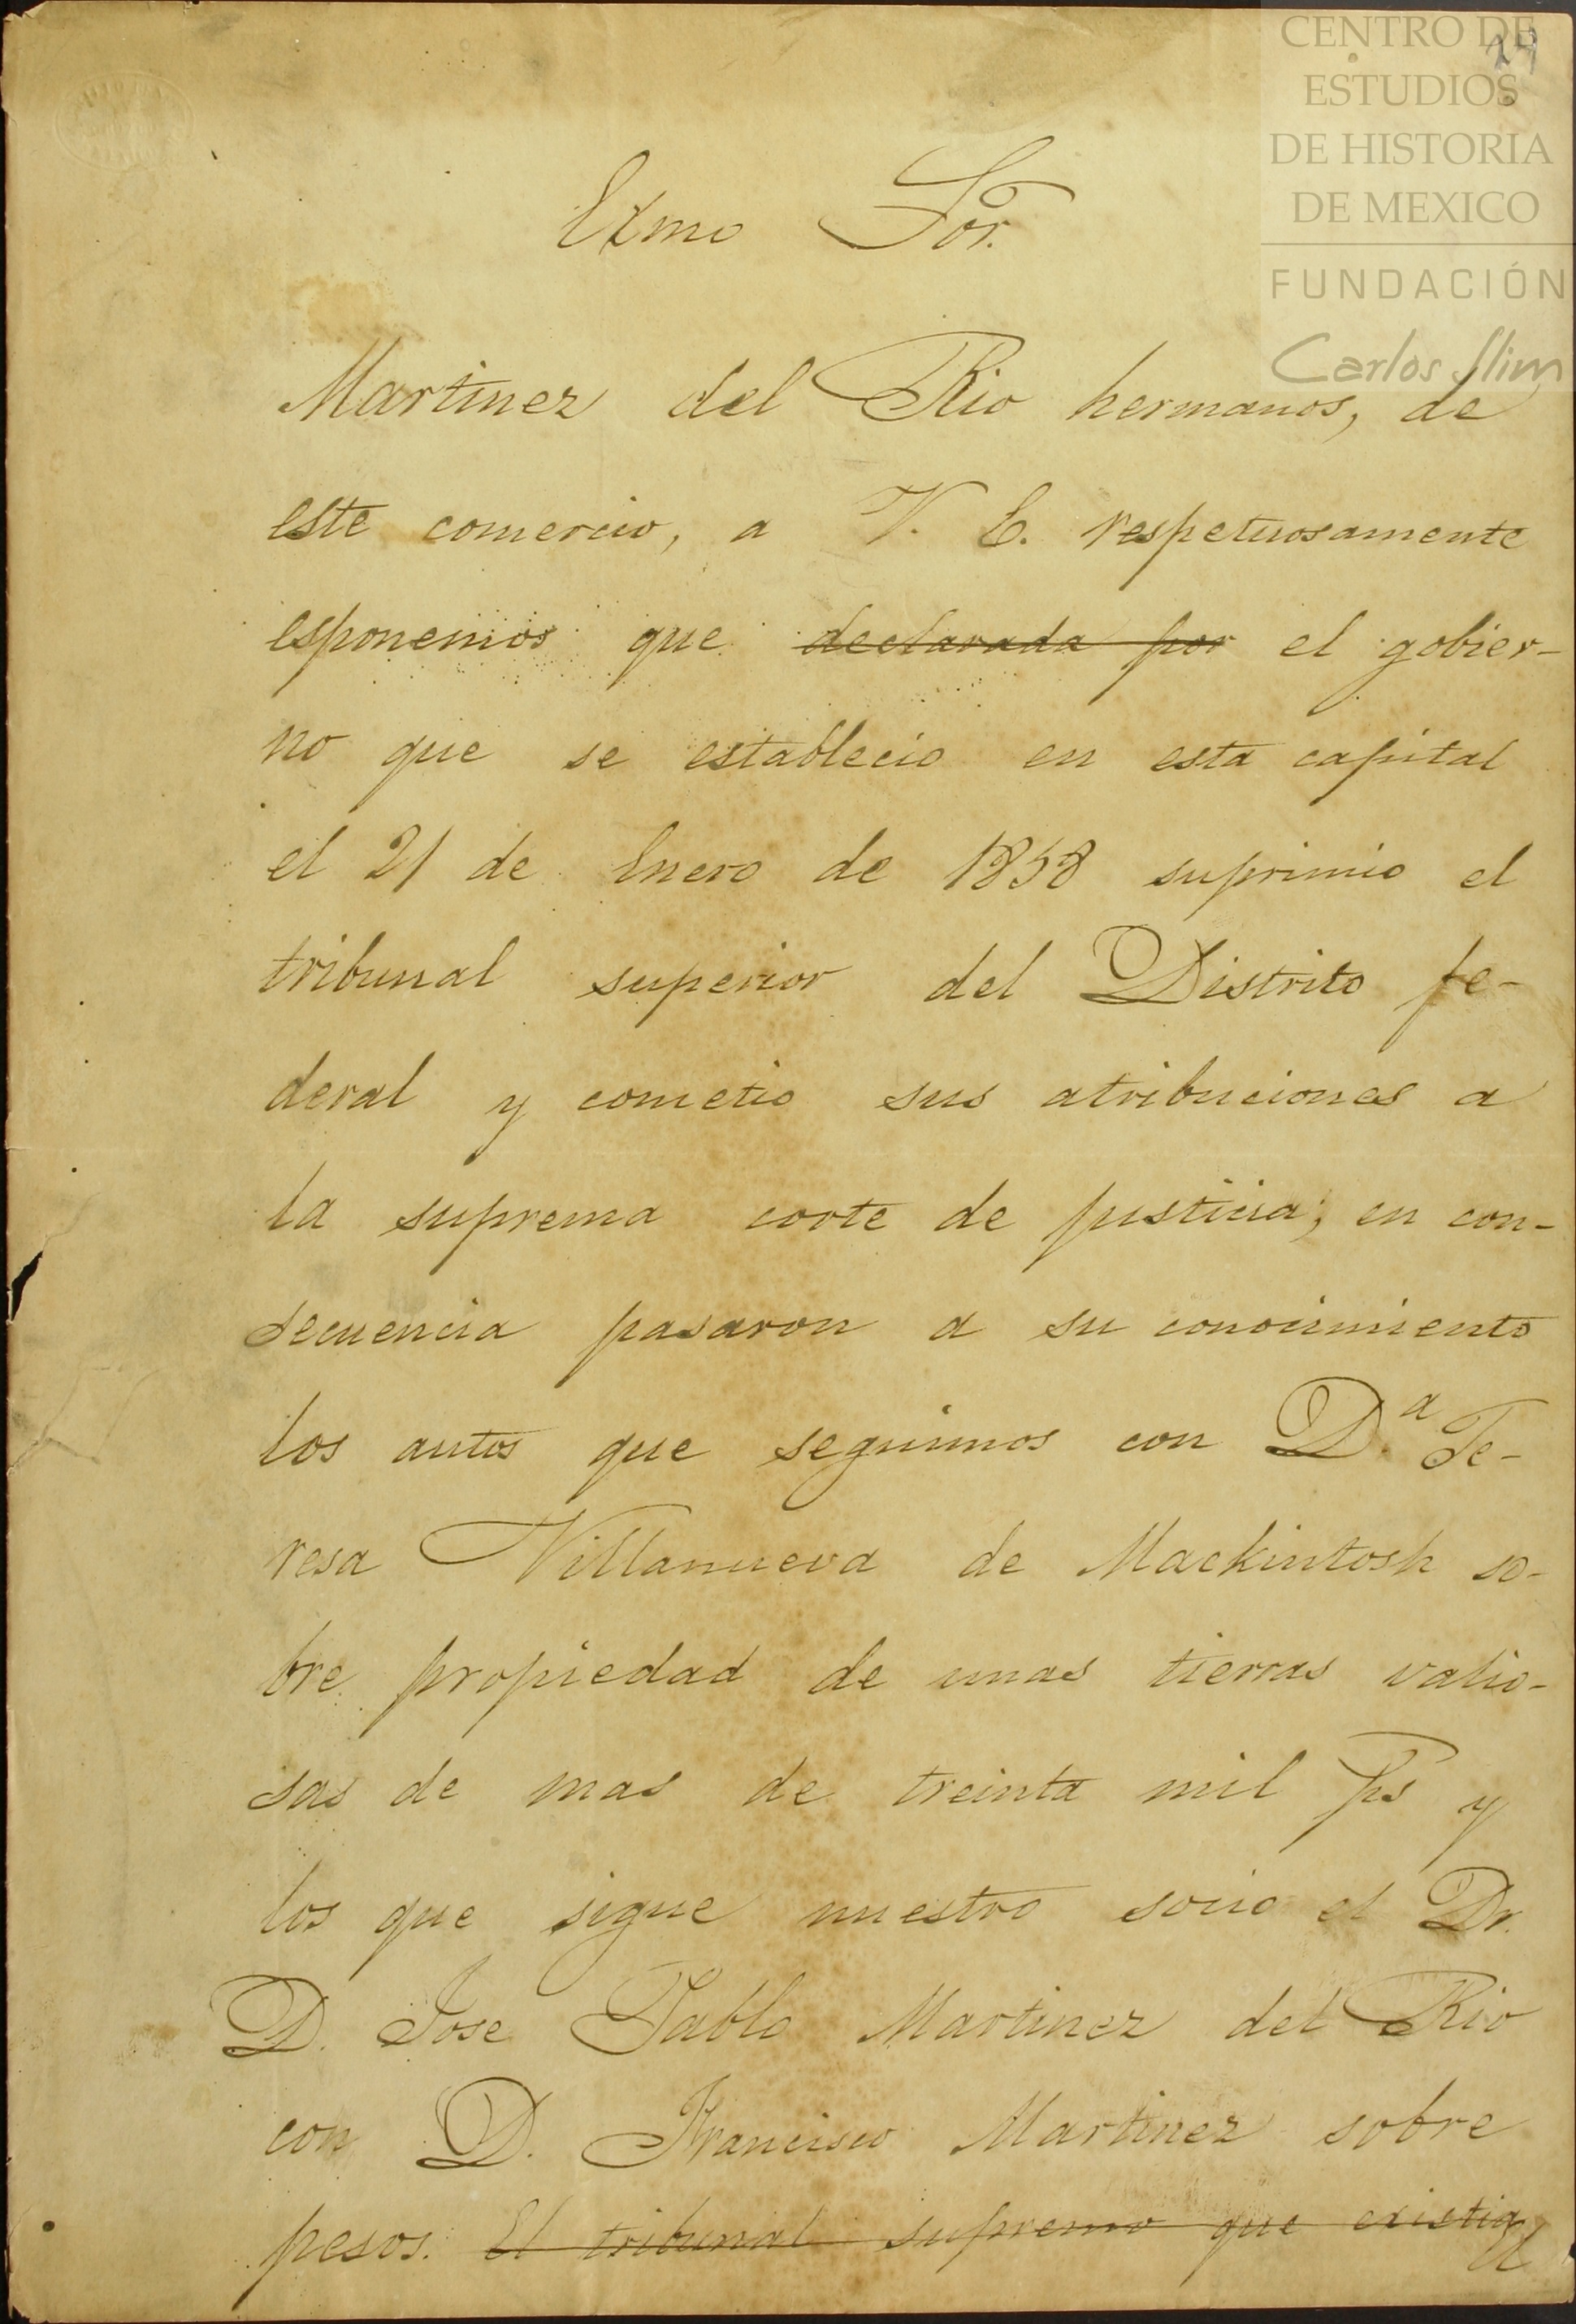 CENTRO DE
ESTUDIOS
DE HISTORIA
DE MEXICO
FUNDACIÓN
Carlos Slim
Exmo Sor.
Martinez del Rio hermanos, de
este comercio, a V. E. respetuosamente
esponemos que declarada por el gobier-
no que se establecio en esta capital
el 21 de Enero de 1858 suprimio el
tribunal superior del Distrito fe-
deral y cometio sus atribuciones a
la suprema corte de justicia; en con-
secuencia pasaron a su conocimiento
los autos que seguimos con D.ª Te-
resa Villanueva de Mackintosh so-
bre propiedad de unas tierras valio-
sas de mas de treinta mil ps y
los que sigue nuestro socio el Dr.
D. Jose Pablo Martinez del Rio
con D. Francisco Martinez sobre
pesos. El tribunal supremo que existia